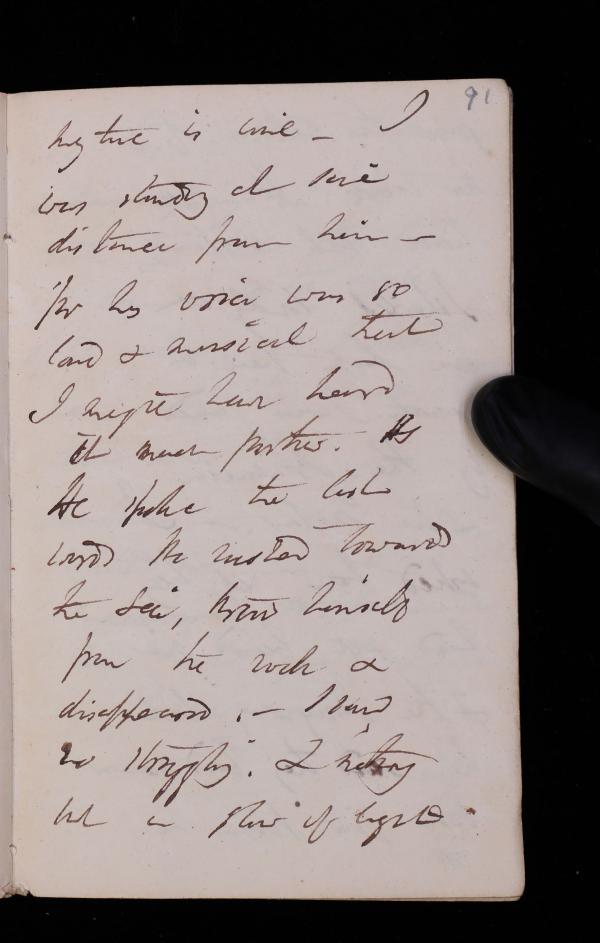 91
is  –  I
was standing at some
distance from him –
for his voice was so
loud & musical that
I might have heard
it much further. As
He spoke the last
word He rushed towards
the sea, threw himself
from the rock &
disappeared. – I heard
no struggling. & nothing
but a  of light